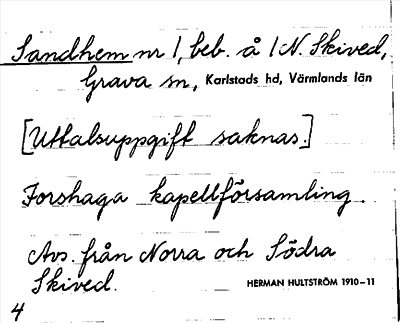 Sandhem nr 1, beb. å 1 N. Skived,
Grava sn, Karlstads hd, Värmlands län
[Uttalsuppgift saknas.]
Forshaga kapellförsamling.
Avs. från Norra och Södra
Skived.
HERMAN HULTSTRÖM 1910-11
4